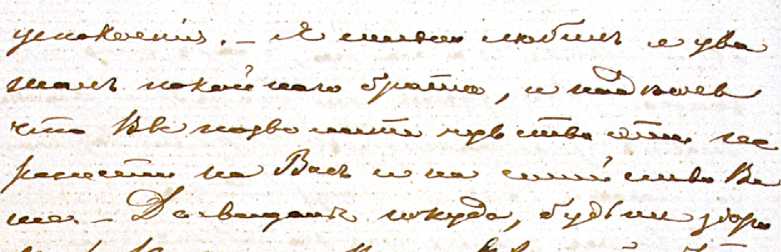 успокоенія. – Я искно любилъ и ува
жалъ покойнаго брата, и надѣюсь
что Вы позволите чувства эти пе
ренести на Васъ и на семейство Ва
ше. – Досвиданья покуда, будьте здоро